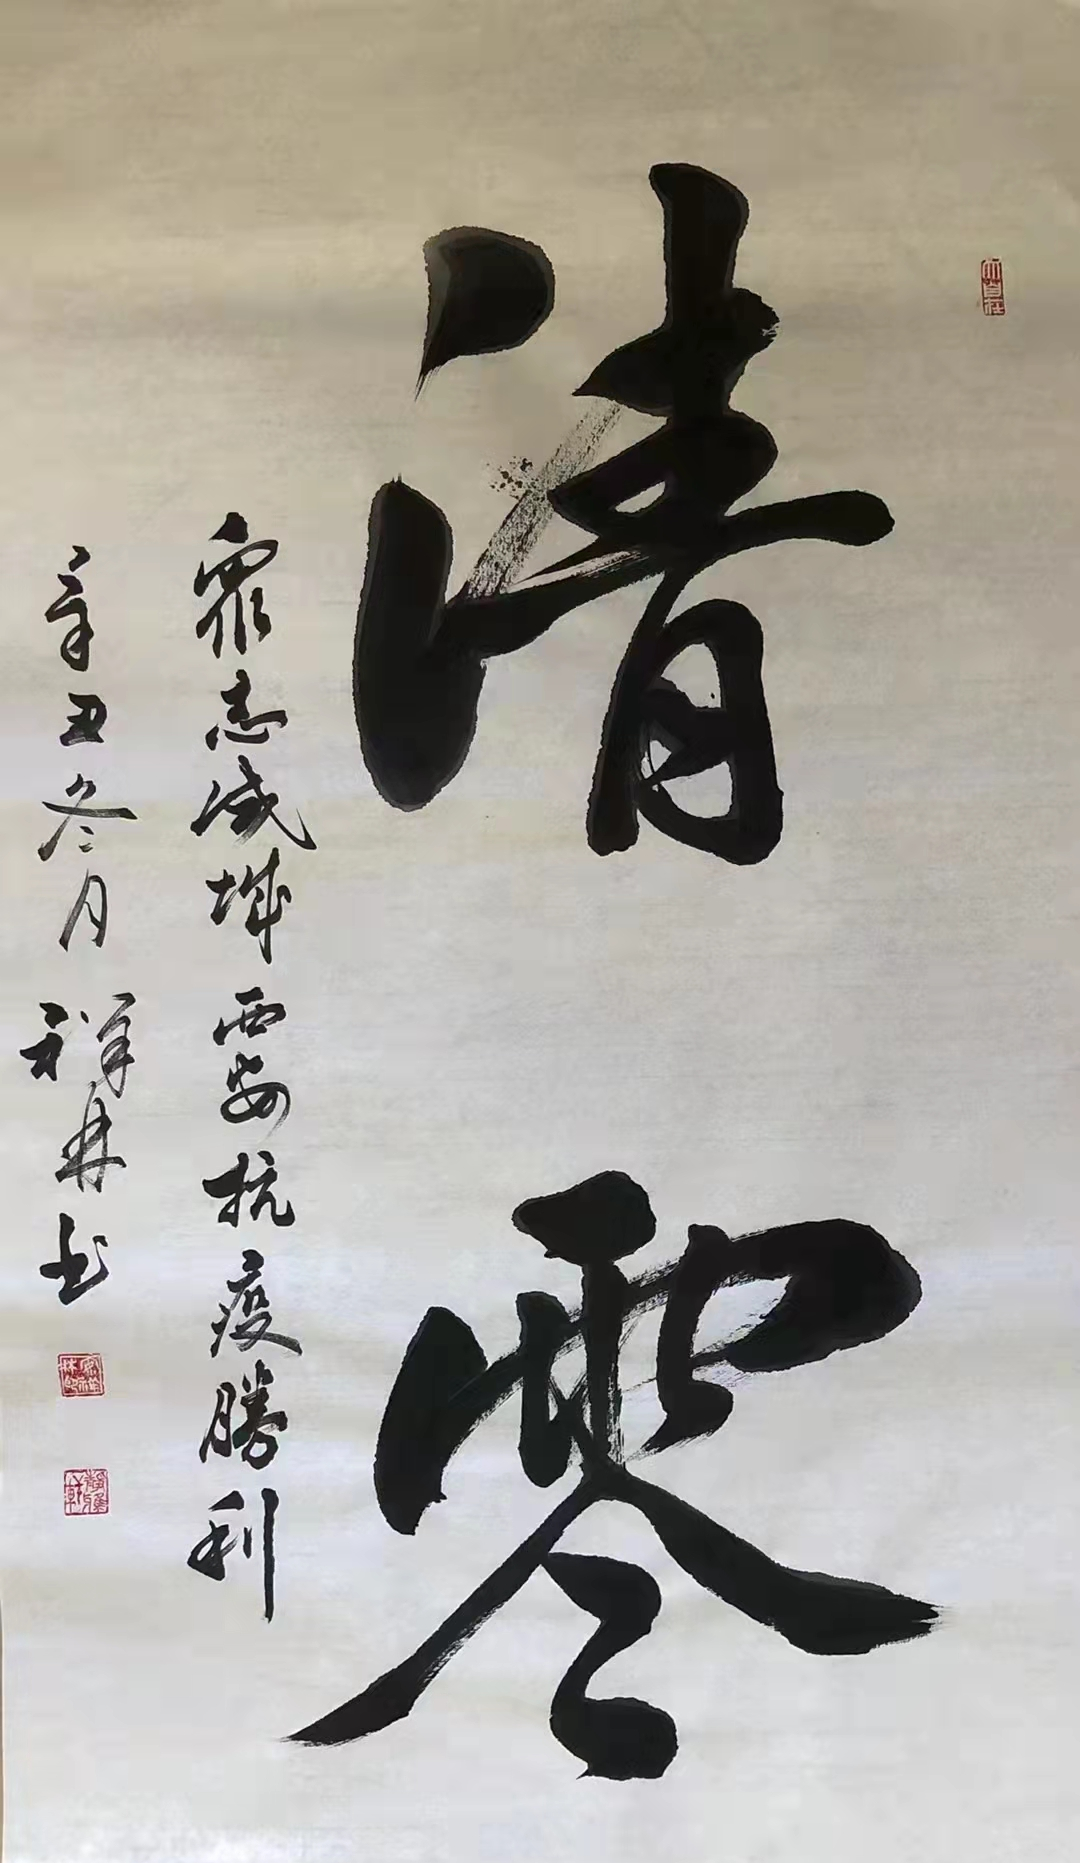 清零
众志成城西安抗疫勝利
辛丑冬月祥林书